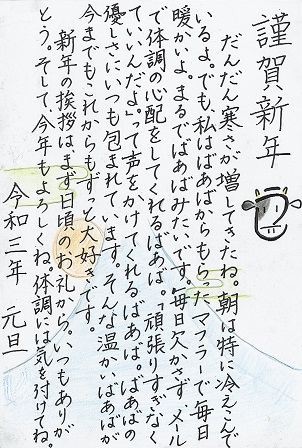 謹賀新年
だんだん寒さが増してきたね。朝は特に冷えこんで
いるよ。でも、私はばあばからもらったマフラーで毎日
暖かいよ。まるでばあばみたいです。毎日欠かさずメール
で体調の心配をしてくれるばあば。頑張りすぎなく
ていいんだよ」って声をかけてくれるばあば。ばあばの
優しさにいつも包まれています。そんな温かばあばが
今までもこれからもずっと大好きです。
新年の挨拶はまず日頃のお礼から。いつもありが
とう。そして、今年もよろしくね。体調には気を付けてね。
令和三年 元旦